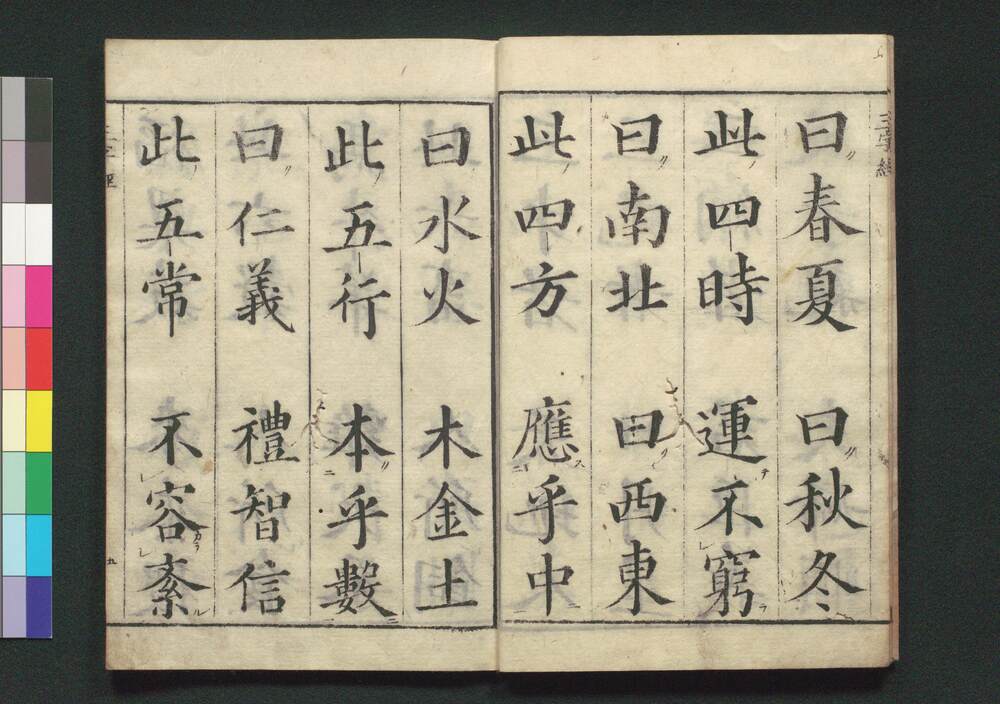 三字經
曰春夏 曰秋冬
此四時 運不窮
曰南北 曰西東
此四方 應乎中
曰水火 木金土
此五行 本乎數
曰仁義 禮智信
此五常 不容紊
三字經
五